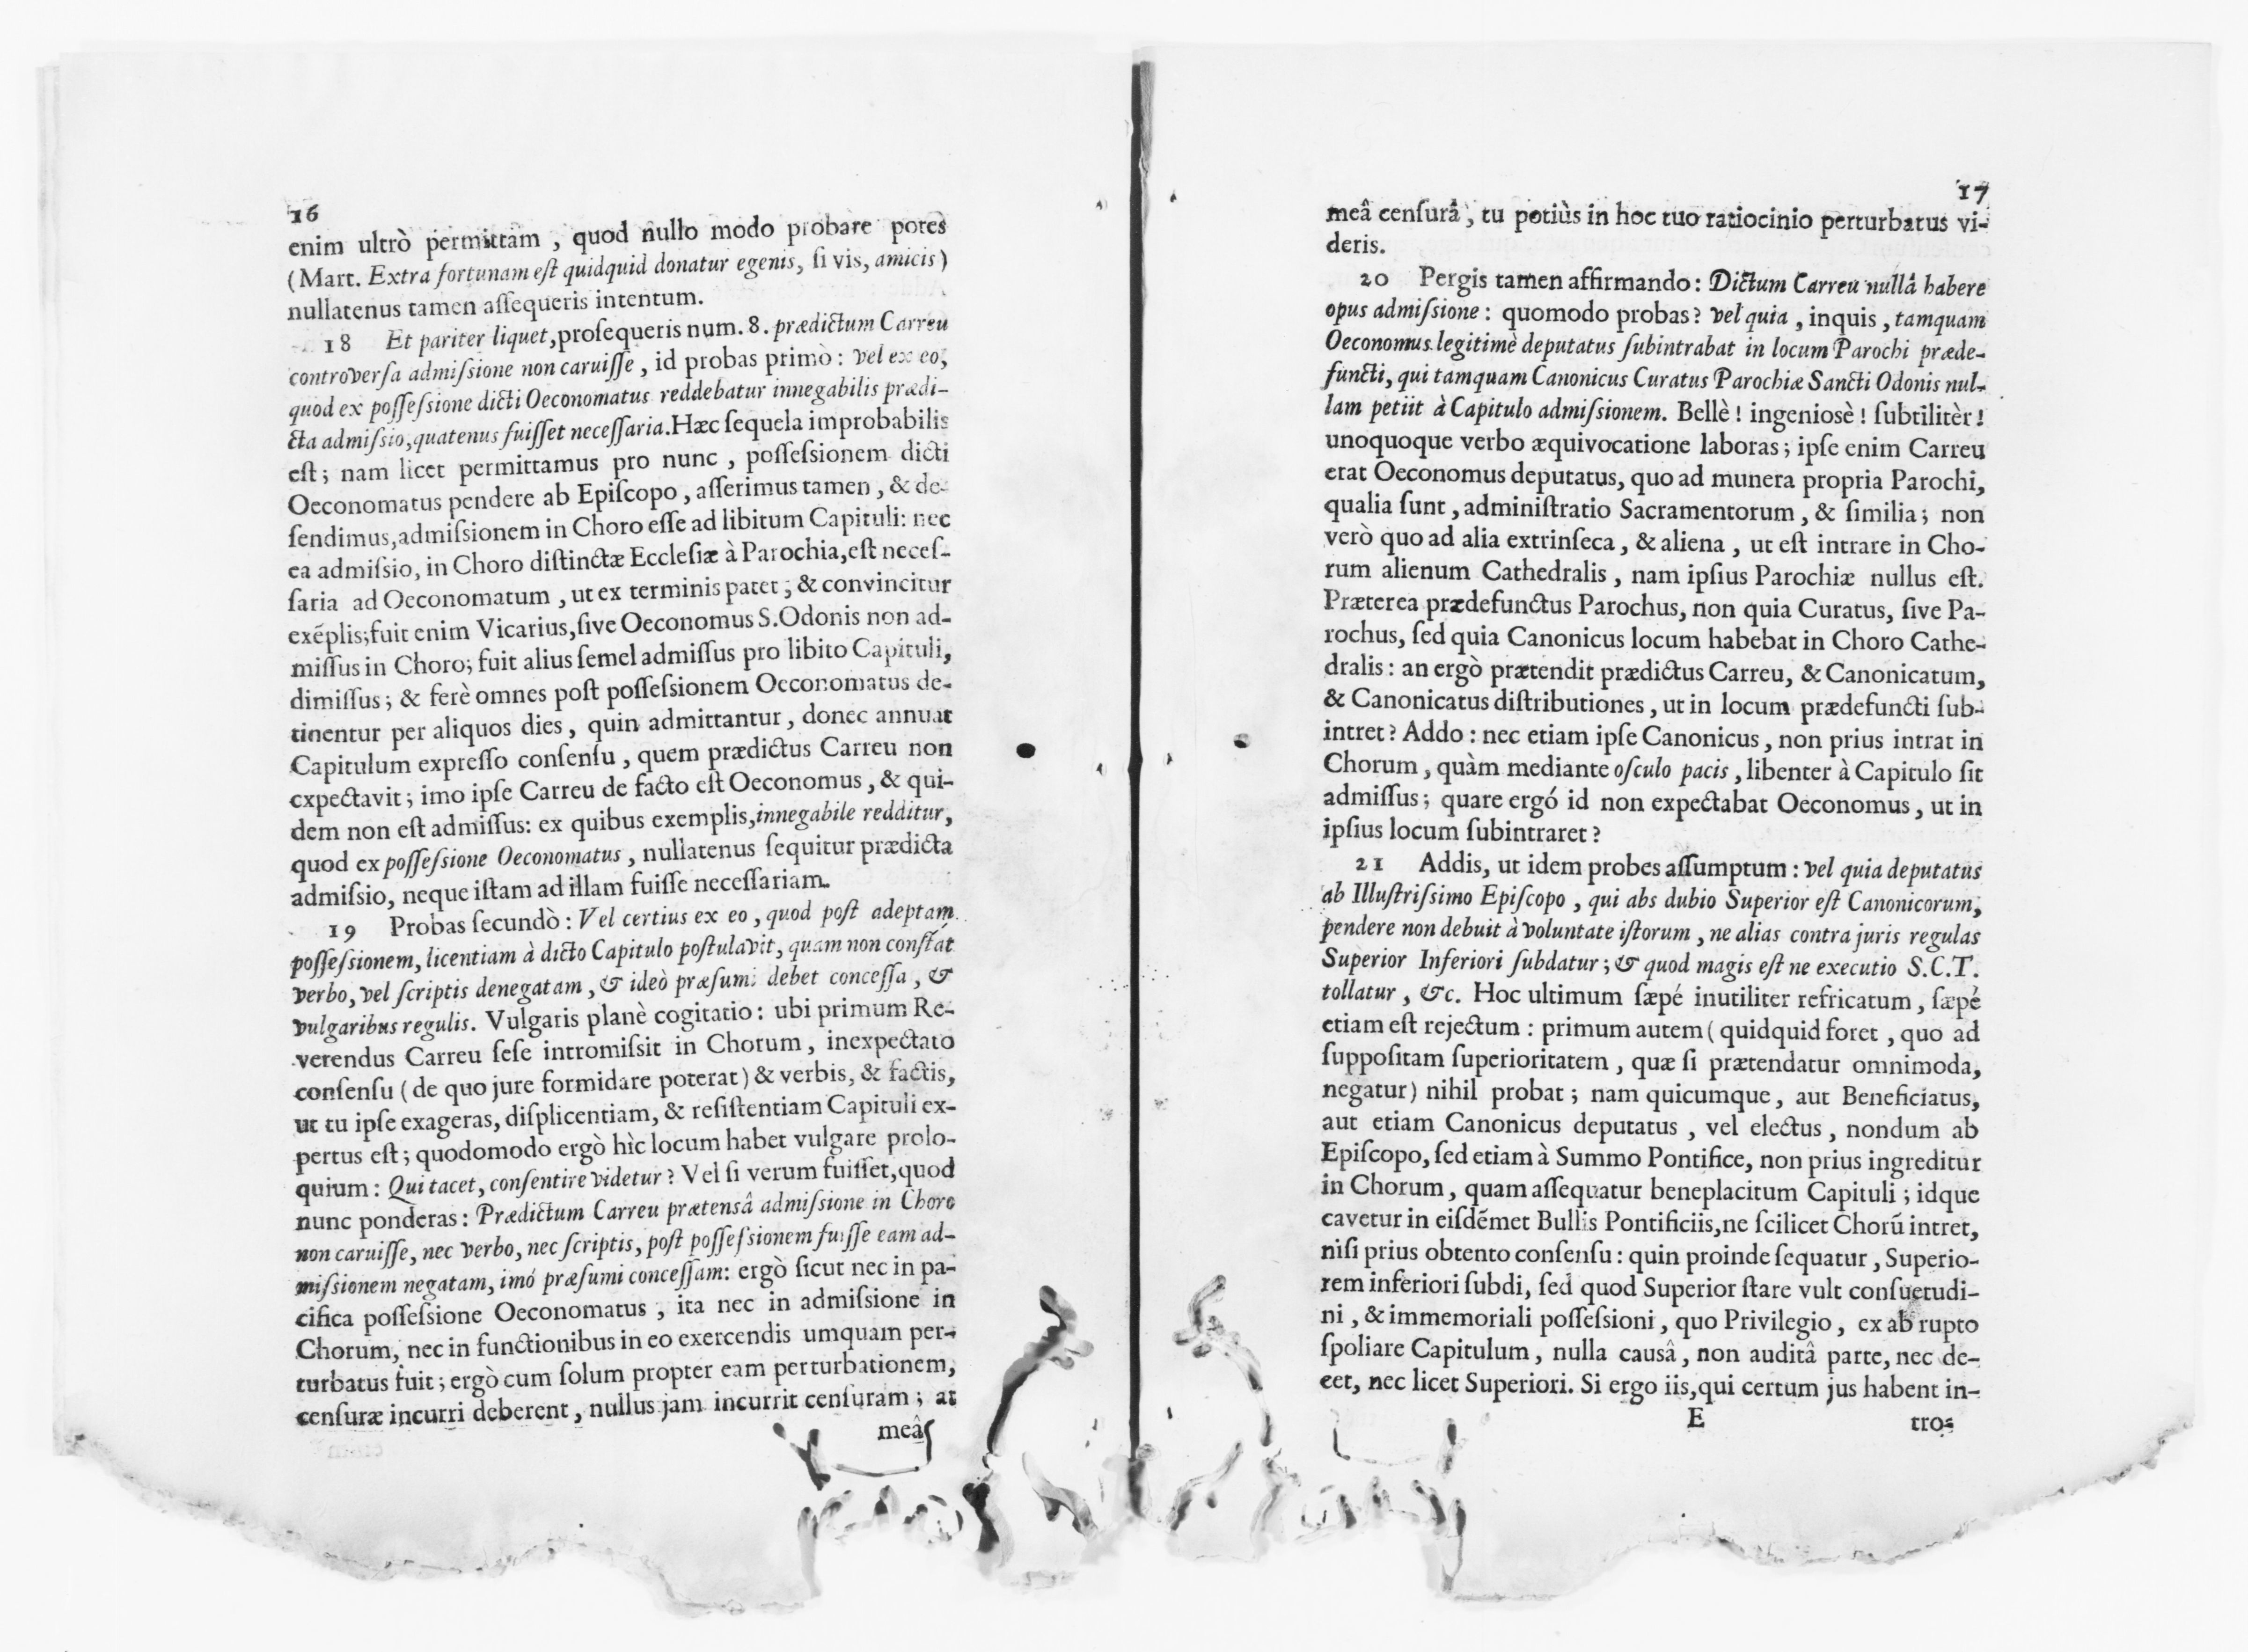 16
enim ultrò permittam, quod nullo modo probare potes
(Mart. Extra fortunam eſt quidquid donatur egenis, ſi vis, amicis)
nullatenus tamen aſſequeris intentum.
18 Et pariter liquet, proſequeris num. 8. prædictum Carreu
controverſa admiſsione non caruiſſe, id probas primò: vel ex eo,
quod ex poſſeſsione dicti Oeconomatus reddebatur innegabilis prædi-
cta admiſsio, quatenus fuiſſet neceſſaria. Hæc ſequela improbabilis
eſt; nam licet permittamus pro nunc, poſſeſsionem dicti
Oeconomatus pendere ab Epiſcopo, aſſerimus tamen, & de-
fendimus, admiſsionem in Choro eſſe ad libitum Capituli: nec
ea admiſsio, in Choro diſtinctæ Eccleſiæ à Parochia, eſt neceſ-
ſaria ad Oeconomatum, ut ex terminis patet; & convincitur
exẽplis; fuit enim Vicarius, ſive Oeconomus S. Odonis non ad-
miſſus in Choro; fuit alius ſemel admiſſus pro libito Capituli,
dimiſſus; & ferè omnes poſt poſſeſsionem Oeconomatus de-
tinentur per aliquos dies, quin admittantur, donec annuat
Capitulum expreſſo conſenſu, quem prædictus Carreu non
expectavit; imo ipſe Carreu de facto eſt Oeconomus, & qui-
dem non eſt admiſſus: ex quibus exemplis, innegabile redditur,
quod ex poſſeſsione Oeconomatus, nullatenus ſequitur prædicta
admiſsio, neque iſtam ad illam fuiſſe neceſſariam.
19 Probas ſecundò: Vel certius ex eo, quod poſt adeptam
poſſeſsionem, licentiam à dicto Capitulo poſtulavit, quam non conſtat
verbo, vel ſcriptis denegatam, & ideò præſumi debet conceſſa, &
vulgaribus regulis. Vulgaris planè cogitatio: ubi primum Re-
verendus Carreu ſeſe intromiſsit in Chorum, inexpectato
conſenſu (de quo jure formidare poterat) & verbis, & factis,
ut tu ipſe exageras, diſplicentiam, & reſiſtentiam Capituli ex-
pertus eſt; quodomodo ergò hìc locum habet vulgare prolo-
quium: Qui tacet, conſentire videtur? Vel ſi verum fuiſſet, quod
nunc ponderas: Prædictum Carreu prætensâ admiſsione in Choro
non caruiſſe, nec verbo, nec ſcriptis, poſt poſſeſsionem fuiſſe eam ad-
miſsionem negatam, imó præſumi conceſſam: ergò ſicut nec in pa-
cifica poſſeſsione Oeconomatus, ita nec in admiſsione in
Chorum, nec in functionibus in eo exercendis umquam per-
turbatus fuit; ergò cum ſolum propter eam perturbationem,
cenſuræ incurri deberent, nullus jam incurrit cenſuram; at
meâ
17
meâ cenſurâ, tu potiùs in hoc tuo ratiocinio perturbatus vi-
deris.
20 Pergis tamen affirmando: Dictum Carreu nullâ habere
opus admiſsione: quomodo probas? vel quia, inquis, tamquam
Oeconomus legitimè deputatus ſubintrabat in locum Parochi præde-
functi, qui tamquam Canonicus Curatus Parochiæ Sancti Odonis nul-
lam petiit à Capitulo admiſsionem. Bellè! ingeniosè! ſubtilitèr!
unoquoque verbo æquivocatione laboras; ipſe enim Carreu
erat Oeconomus deputatus, quo ad munera propria Parochi,
qualia ſunt, adminiſtratio Sacramentorum, & ſimilia; non
verò quo ad alia extrinſeca, & aliena, ut eſt intrare in Cho-
rum alienum Cathedralis, nam ipſius Parochiæ nullus eſt.
Præterea prædefunctus Parochus, non quia Curatus, ſive Pa-
rochus, ſed quia Canonicus locum habebat in Choro Cathe-
dralis: an ergò prætendit prædictus Carreu, & Canonicatum,
& Canonicatus diſtributiones, ut in locum prædefuncti ſub-
intret? Addo: nec etiam ipſe Canonicus, non prius intrat in
Chorum, quàm mediante oſculo pacis, libenter à Capitulo ſit
admiſſus; quare ergó id non expectabat Oeconomus, ut in
ipſius locum ſubintraret?
21 Addis, ut idem probes aſſumptum: vel quia deputatus
ab Illuſtriſsimo Epiſcopo, qui abs dubio Superior eſt Canonicorum,
pendere non debuit à voluntate iſtorum, ne alias contra juris regulas
Superior Inferiori ſubdatur; & quod magis eſt ne executio S.C.T.
tollatur, &c. Hoc ultimum ſæpé inutiliter refricatum, ſæpé
etiam eſt rejectum: primum autem (quidquid foret, quo ad
ſuppoſitam ſuperioritatem, quæ ſi prætendatur omnimoda,
negatur) nihil probat; nam quicumque, aut Beneficiatus,
aut etiam Canonicus deputatus, vel electus, nondum ab
Epiſcopo, ſed etiam à Summo Pontifice, non prius ingreditur
in Chorum, quam aſſequatur beneplacitum Capituli; idque
cavetur in eiſdẽmet Bullis Pontificiis, ne ſcilicet Chorũ intret,
niſi prius obtento conſenſu: quin proinde ſequatur, Superio-
rem inferiori ſubdi, ſed quod Superior ſtare vult conſuetudi-
ni, & immemoriali poſſeſsioni, quo Privilegio, ex abrupto
ſpoliare Capitulum, nulla causâ, non auditâ parte, nec de-
cet, nec licet Superiori. Si ergo iis, qui certum jus habent in-
E tro-